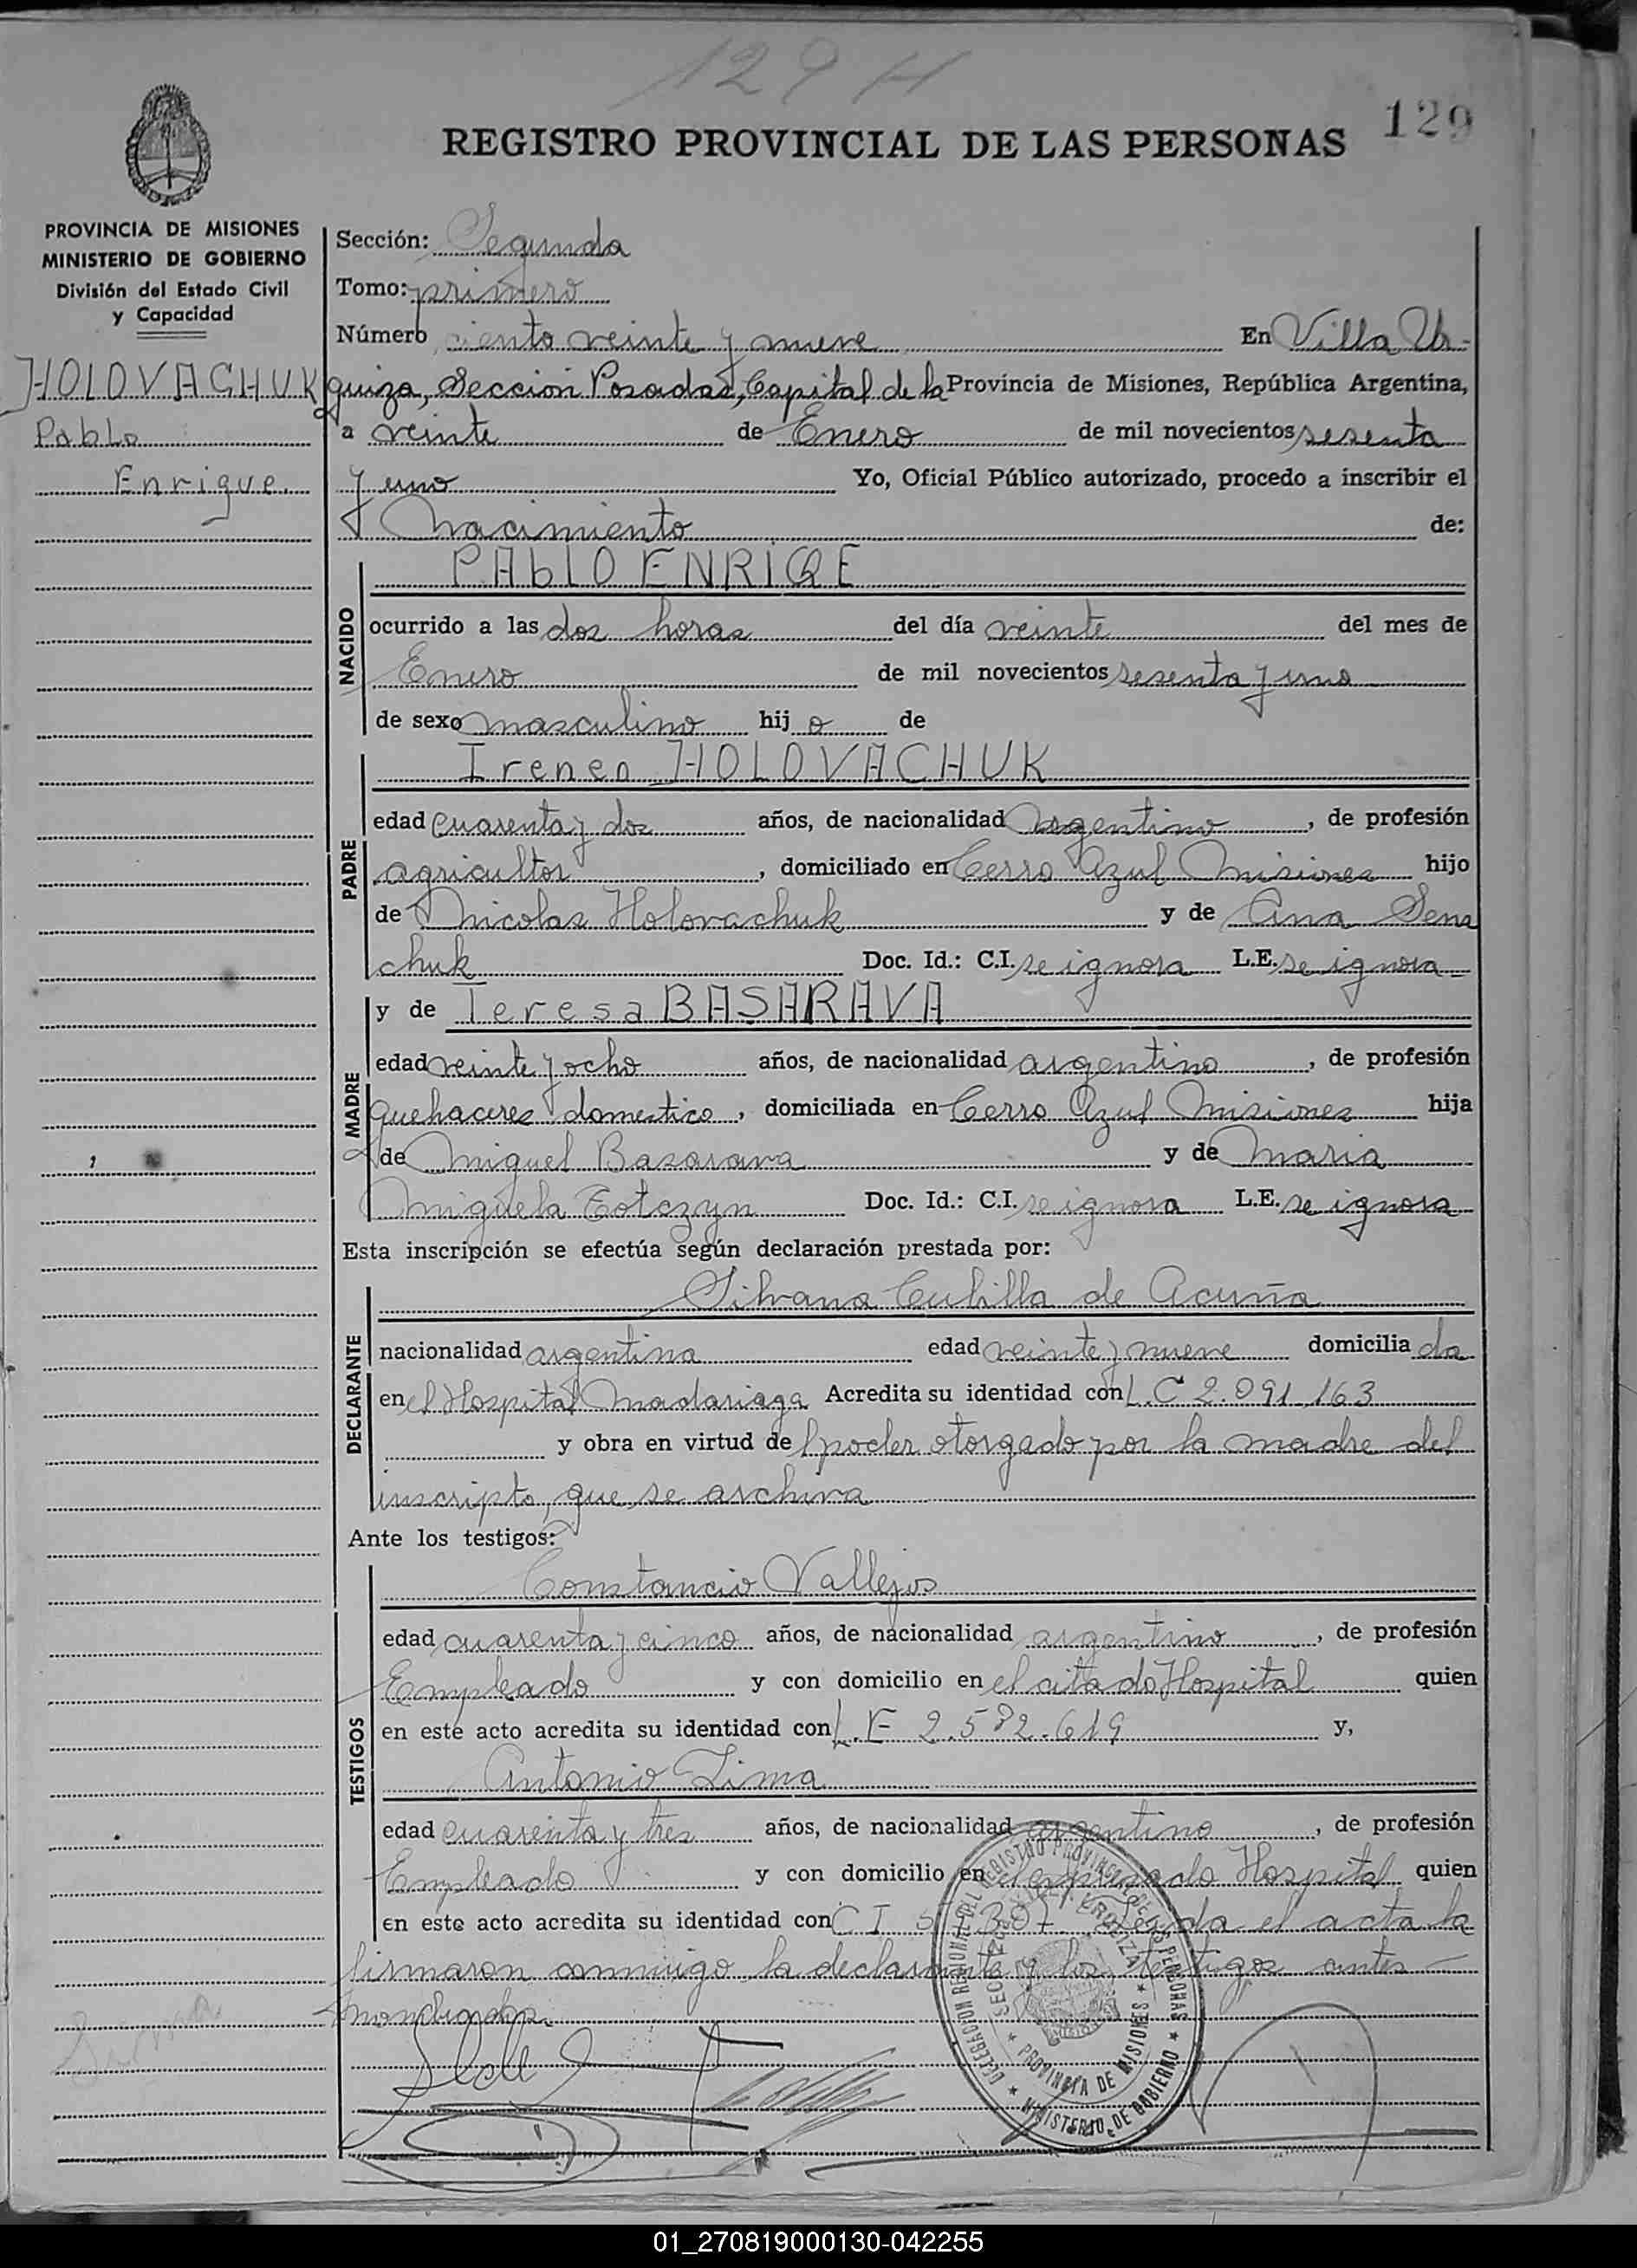 129 H
129
REGISTRO PROVINCIAL DE LAS PERSONAS
PROVINCIA DE MISIONES
MINISTERIO DE GOBIERNO
División del Estado Civil
y Capacidad
HOLOVACHUK
Pablo
Enrique.
Sección: Segunda
Tomo: primero
Número ciento veinte y nueve En Villa Ur-
quiza, Sección Posadas, Capital de la Provincia de Misiones, República Argentina,
a veinte de Enero de mil novecientos sesenta
y uno Yo, Oficial Público autorizado, procedo a inscribir el
Nacimiento de:
NACIDO
PABLO ENRIQE
ocurrido a las dos horas del día veinte del mes de
Enero de mil novecientos sesenta y uno
de sexo masculino hij o de
PADRE
Ireneo HOLOVACHUK
edad cuarenta y dos años, de nacionalidad argentino, de profesión
agricultor, domiciliado en Cerro Azul Misiones hijo
de Nicolas Holovachuk y de Ana Sens
chuk Doc. Id.: C.I. se ignora L.E. se ignora
MADRE
y de Teresa BASARAVA
edad veinte y ocho años, de nacionalidad argentino, de profesión
quehaceres domestico, domiciliada en Cerro Azul Misiones hija
de Miguel Basarava y de Maria
Miguela Totczyn Doc. Id.: C.I. se ignora L.E. se ignora
Esta inscripción se efectúa según declaración prestada por:
DECLARANTE
Silvana Cubilla de Acuña
nacionalidad argentina edad veinte y nueve domicilia da
en el Hospital Madariaga Acredita su identidad con L.C 2.091.163
y obra en virtud de l poder otorgado por la madre del
inscripto, que se archiva
Ante los testigos:
TESTIGOS
Constancio Vallejos
edad cuarenta y cinco años, de nacionalidad argentino, de profesión
Empleado y con domicilio en el citado Hospital quien
en este acto acredita su identidad con L.E 2.582.619 y,
Antonio Lima
edad cuarenta y tres años, de nacionalidad argentino, de profesión
Empleado y con domicilio en el expresado Hospital quien
en este acto acredita su identidad con C I Leyda el acta la
firmaron conmigo la declarante y los testigos antes
monbrados.
DELEGACION REGIONAL DEL REGISTRO PROVINCIAL DE LAS PERSONAS
VILLA URQUIZA
PROVINCIA DE MISIONES
MINISTERIO DE GOBIERNO
01_270819000130-042255